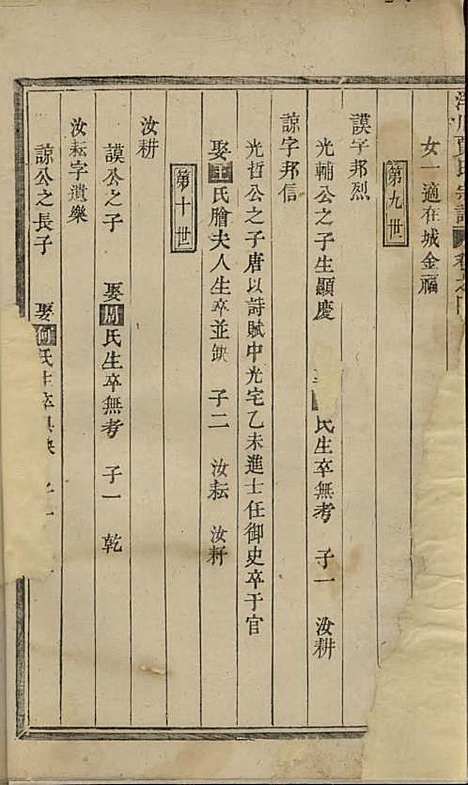 氏宗譜 卷之
女一適在城金福
第九世
謨字邦烈
光輔公之子生顯慶 氏生卒無考 子一 汝耕
諒字邦信
光哲公之子唐以詩賦中光宅乙未進士任御史卒于官
娶王氏贈夫人生卒並缺 子二 汝耘 汝耔
第十世
汝耕
謨公之子 娶周氏生卒無考 子一 乾
汝耘字遺樂
諒公之長子 娶何氏生卒 子一